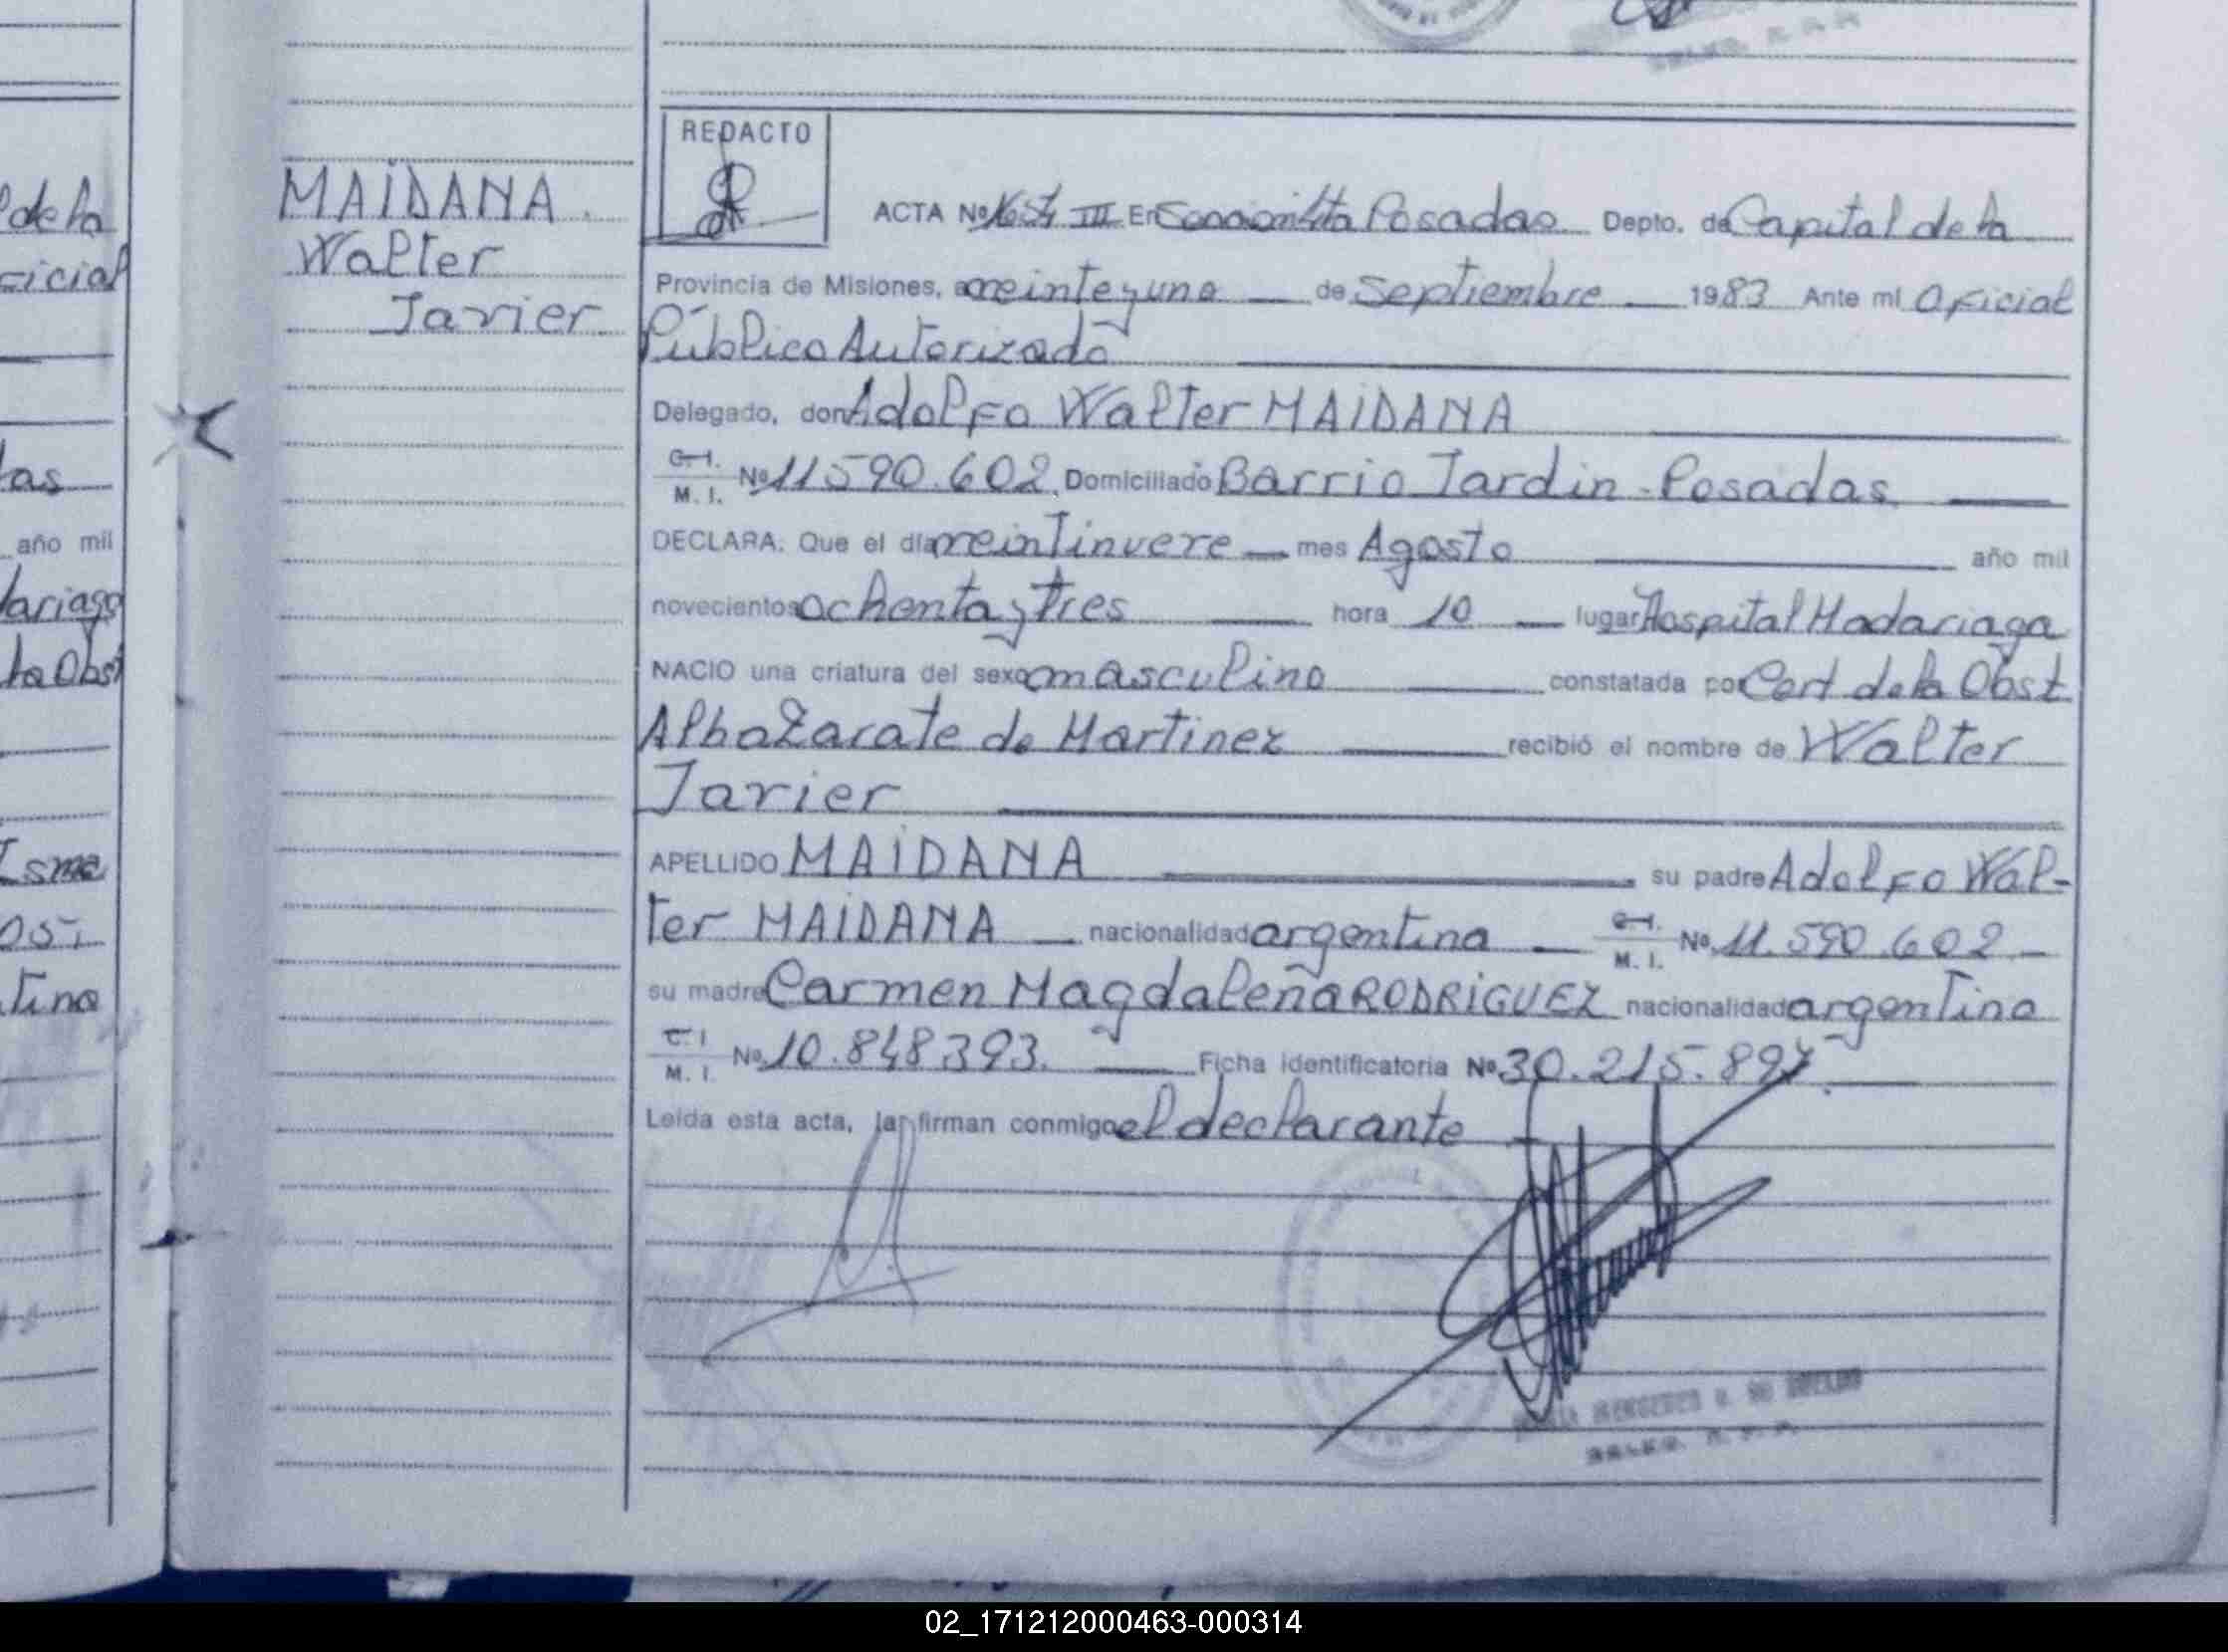 de la
ficial
las
año mil
dariaga
la Obst
Isma
tina
MAIDANA
Walter
Javier
REDACTO
ACTA Nº 1654 III En Sección 4ta Posadas Depto. de Capital de la
Provincia de Misiones, a veinteyuno de Septiembre 1983 Ante mí Oficial
Público Autorizado
Delegado, don Adolfo Walter MAIDANA
C.I.
M. I. Nº 11590.602 Domiciliado Barrio Jardin - Posadas
DECLARA: Que el día veintinueve mes Agosto año mil
novecientos ochenta y tres hora 10 lugar Hospital Madariaga
NACIO una criatura del sexo masculino constatada por Cert de la Obst
Alba Zarate de Martinez recibió el nombre de Walter
Javier
APELLIDO MAIDANA su padre Adolfo Wal-
ter MAIDANA nacionalidad argentina C.I. M. I. Nº 11.590.602
su madre Carmen Magdaleña RODRIGUEZ nacionalidad argentina
C. I
M. I. Nº 10.848393. Ficha identificatoria Nº 30.215.897
Leída esta acta, la firman conmigo el declarante
02_171212000463-000314